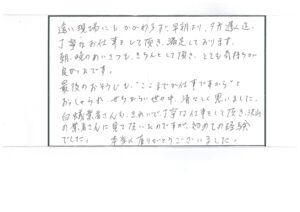 遠い現場にもかかわらず、早朝より、夕方遅く迄、
丁寧なお仕事をして頂き、満足しております。
朝、晩のあいさつも、きちんとして頂き、とても気持ちが
良かったです。
最後のおそうじも、"ここまでが仕事ですから"と
おっしゃられ、せちがらい世の中、清々しく思いました。
白蟻業者さんも、きれいで丁寧な仕事をして頂き、沢山
の業者さんに見て頂いたのですが、初めての経験
でした。 本当に有りがとうございました。